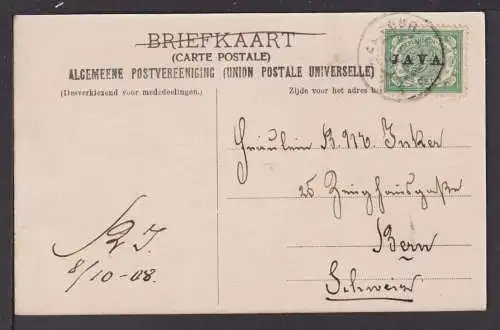 BRIEFKAART
(CARTE POSTALE)
ALGEMEENE POSTVEREENIGING (UNION POSTALE UNIVERSELLE)
(Desverkiezend voor mededeelingen.)
Zijde voor het adres
JAVA
Fräulein B. W. Inker
25 Zeughausgaße
Bern
Schweiz
8/10-08.